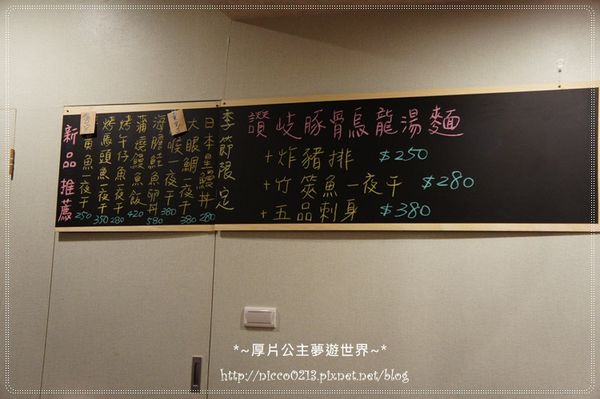 新品推薦
季節限定
日本星鰻丼 280
大眼鯛一夜干 380
喉一夜干 380
海膽鮭魚卵丼 580
蒲燒鰻魚飯 420
烤午仔魚一夜干 280
烤馬頭魚一夜干 350
黃魚一夜干 250
讚岐豚骨烏龍湯麵
+炸豬排 $250
+竹筴魚一夜干 $280
+五品刺身 $380
*~厚片公主夢遊世界~*
http://nicco0213.pixnet.net/blog